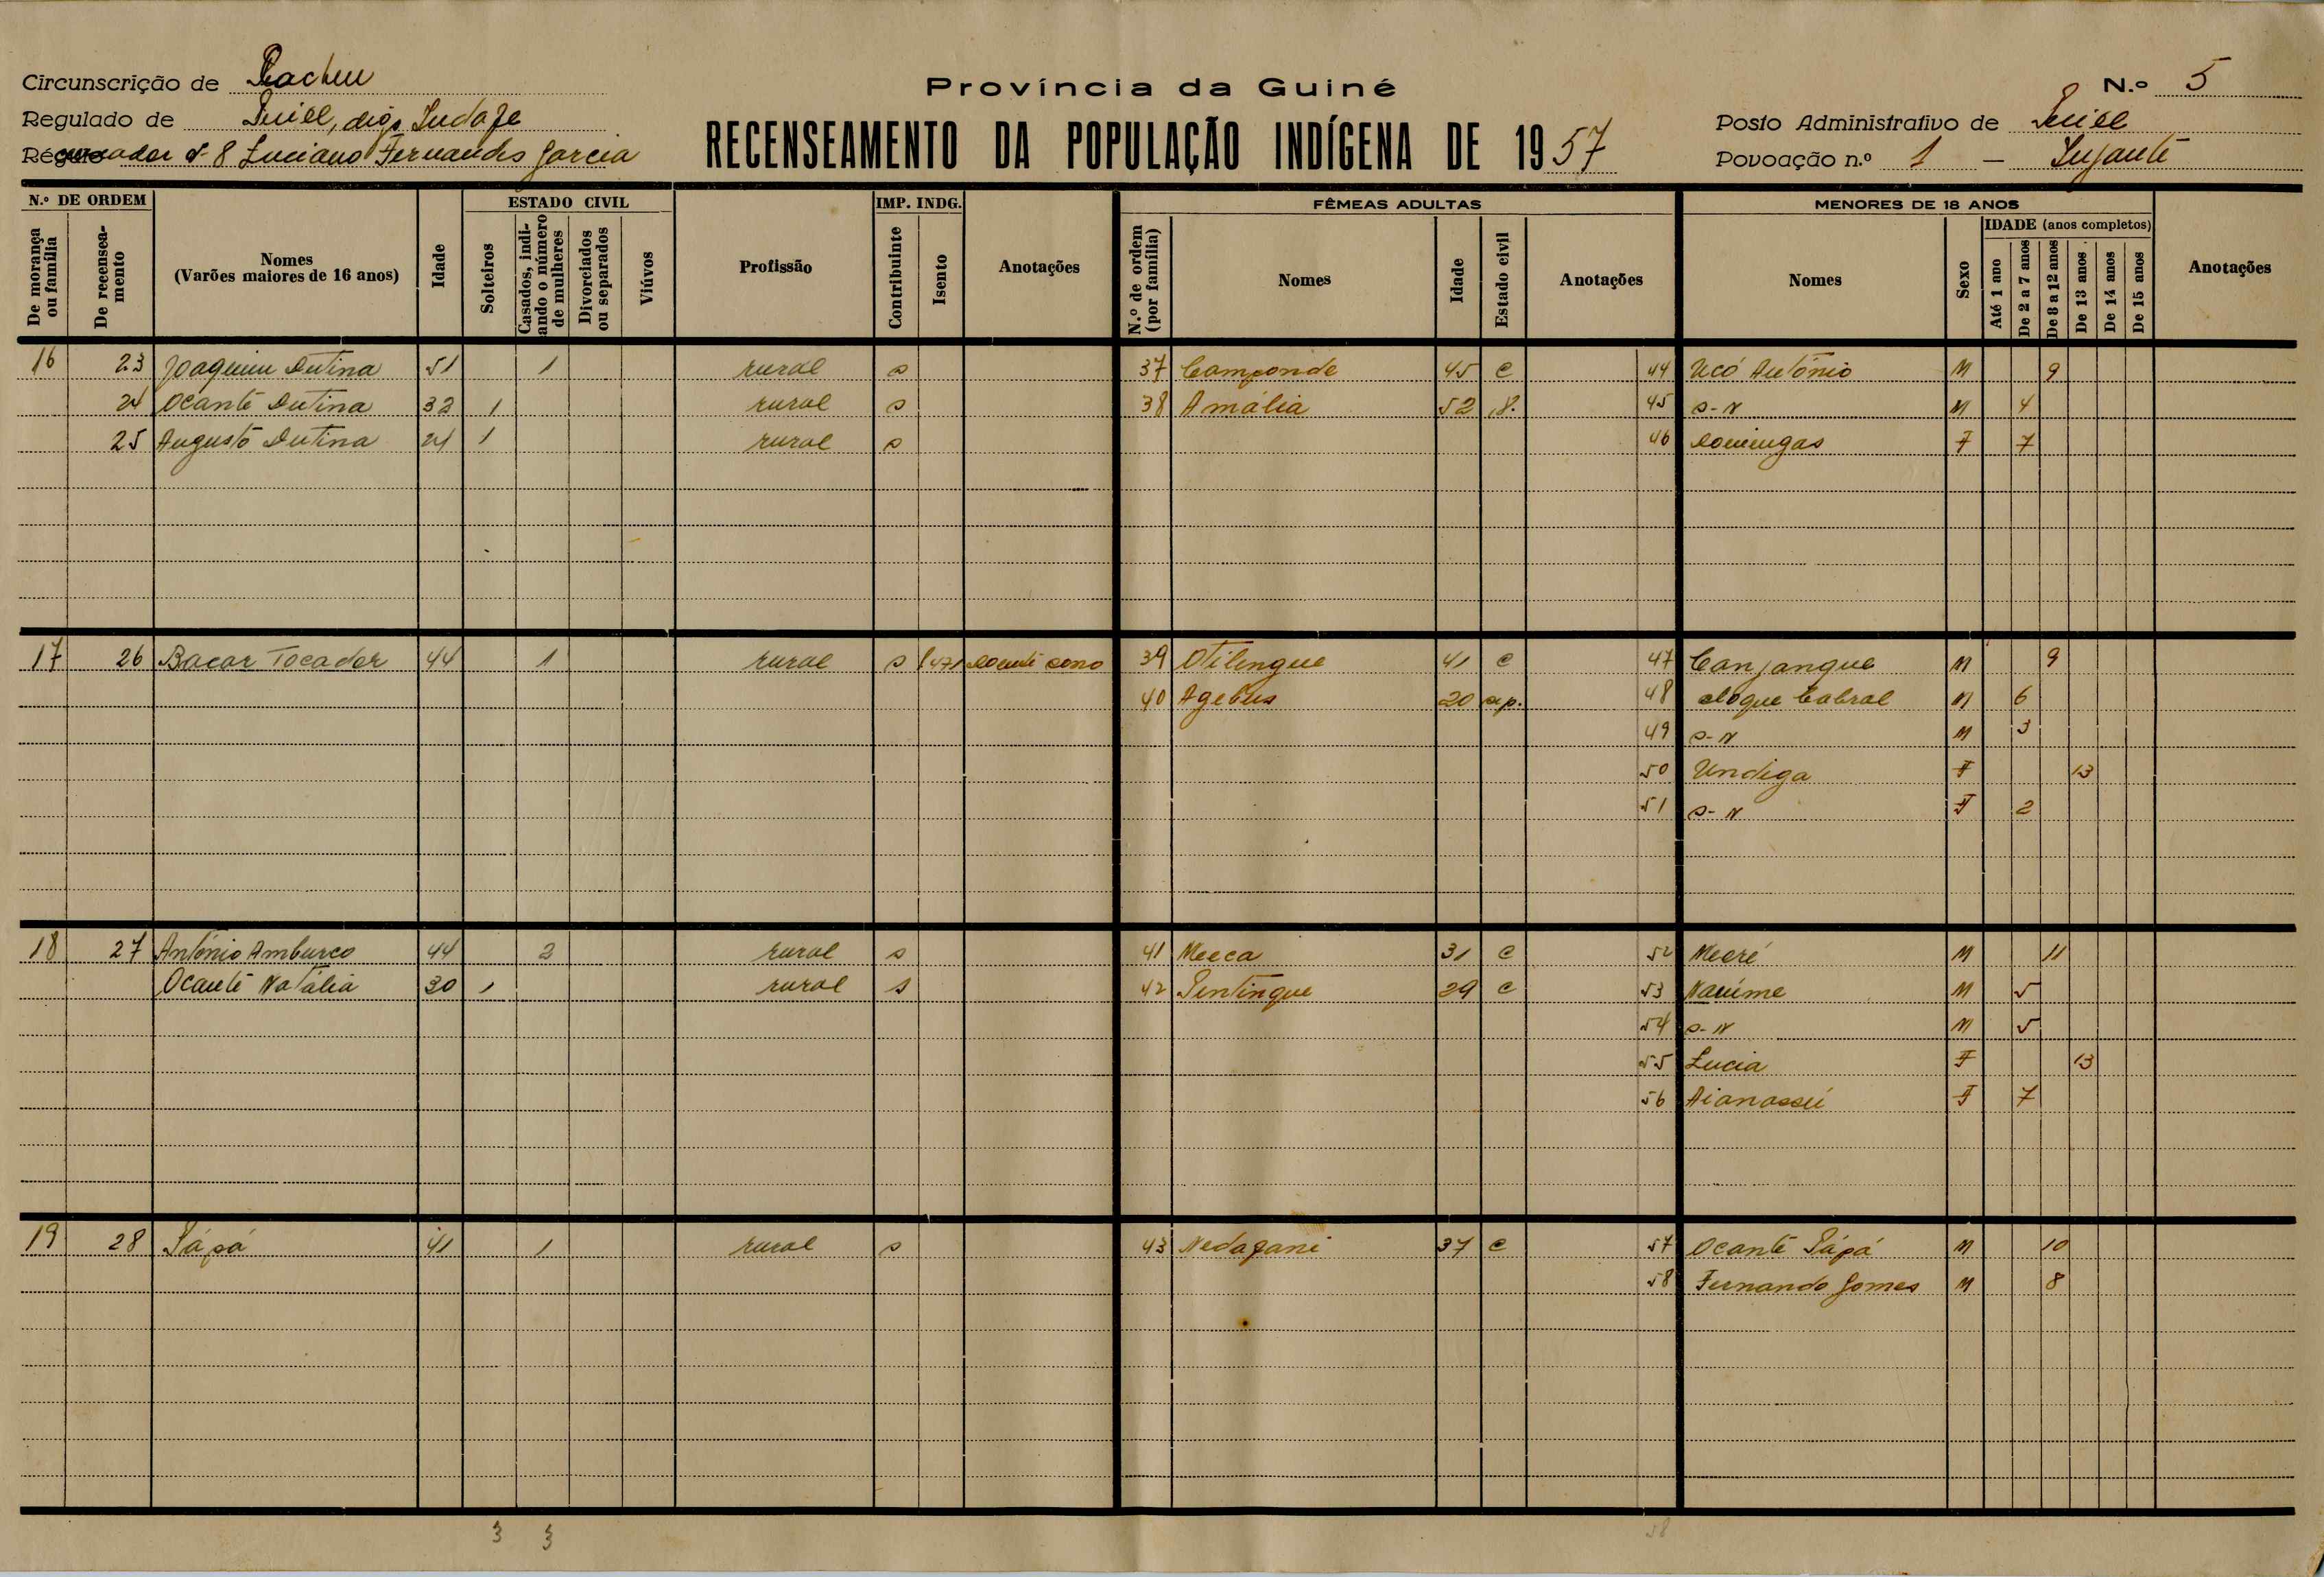 Província da Guiné
N.º 5
Circunscrição de
Regulado de
Luciano Fernandes Garcia
RECENSEAMENTO DA POPULAÇÃO INDÍGENA DE 1957
Posto Administrativo de
Povoação n.º 1 –
N.º DE ORDEM
De morança ou família
De recenseamento
Nomes
(Varões maiores de 16 anos)
Idade
ESTADO CIVIL
Solteiros
Casados, indicando o número de mulheres
Divorciados ou separados
Viúvos
Profissão
IMP. INDG.
Contribuinte
Isento
Anotações
FÊMEAS ADULTAS
N.º de ordem (por família)
Nomes
Idade
Estado civil
Anotações
MENORES DE 18 ANOS
Nomes
Sexo
IDADE (anos completos)
Até 1 ano
De 2 a 7 anos
De 8 a 12 anos
De 13 anos
De 14 anos
De 15 anos
Anotações
16 23 Joaquim 51 1 rural s 37 Camponde 45 c 44 Ucó António M 9
24 Ocante 32 1 rural s 38 Amália 52 45 s-N M 4
25 Augusto 1 rural s 46 Domingas F 7
17 26 Bacar Tocador 44 1 rural s doente sono 39 Otilengue 41 c 47 Canjangue M 9
40 20 sep. 48 Cabral M 6
49 s-N M 3
50 Undiga F 13
51 s-N F 2
18 27 António Amburco 44 2 rural s 41 31 c 52 M 11
Ocante Natália 30 1 rural s 42 29 c 53 M 5
54 s-N M 5
55 Lucia F 13
56 F 7
19 28 41 1 rural s 43 37 c 57 Ocante M 10
58 Fernando Gomes M 8
3 3 58